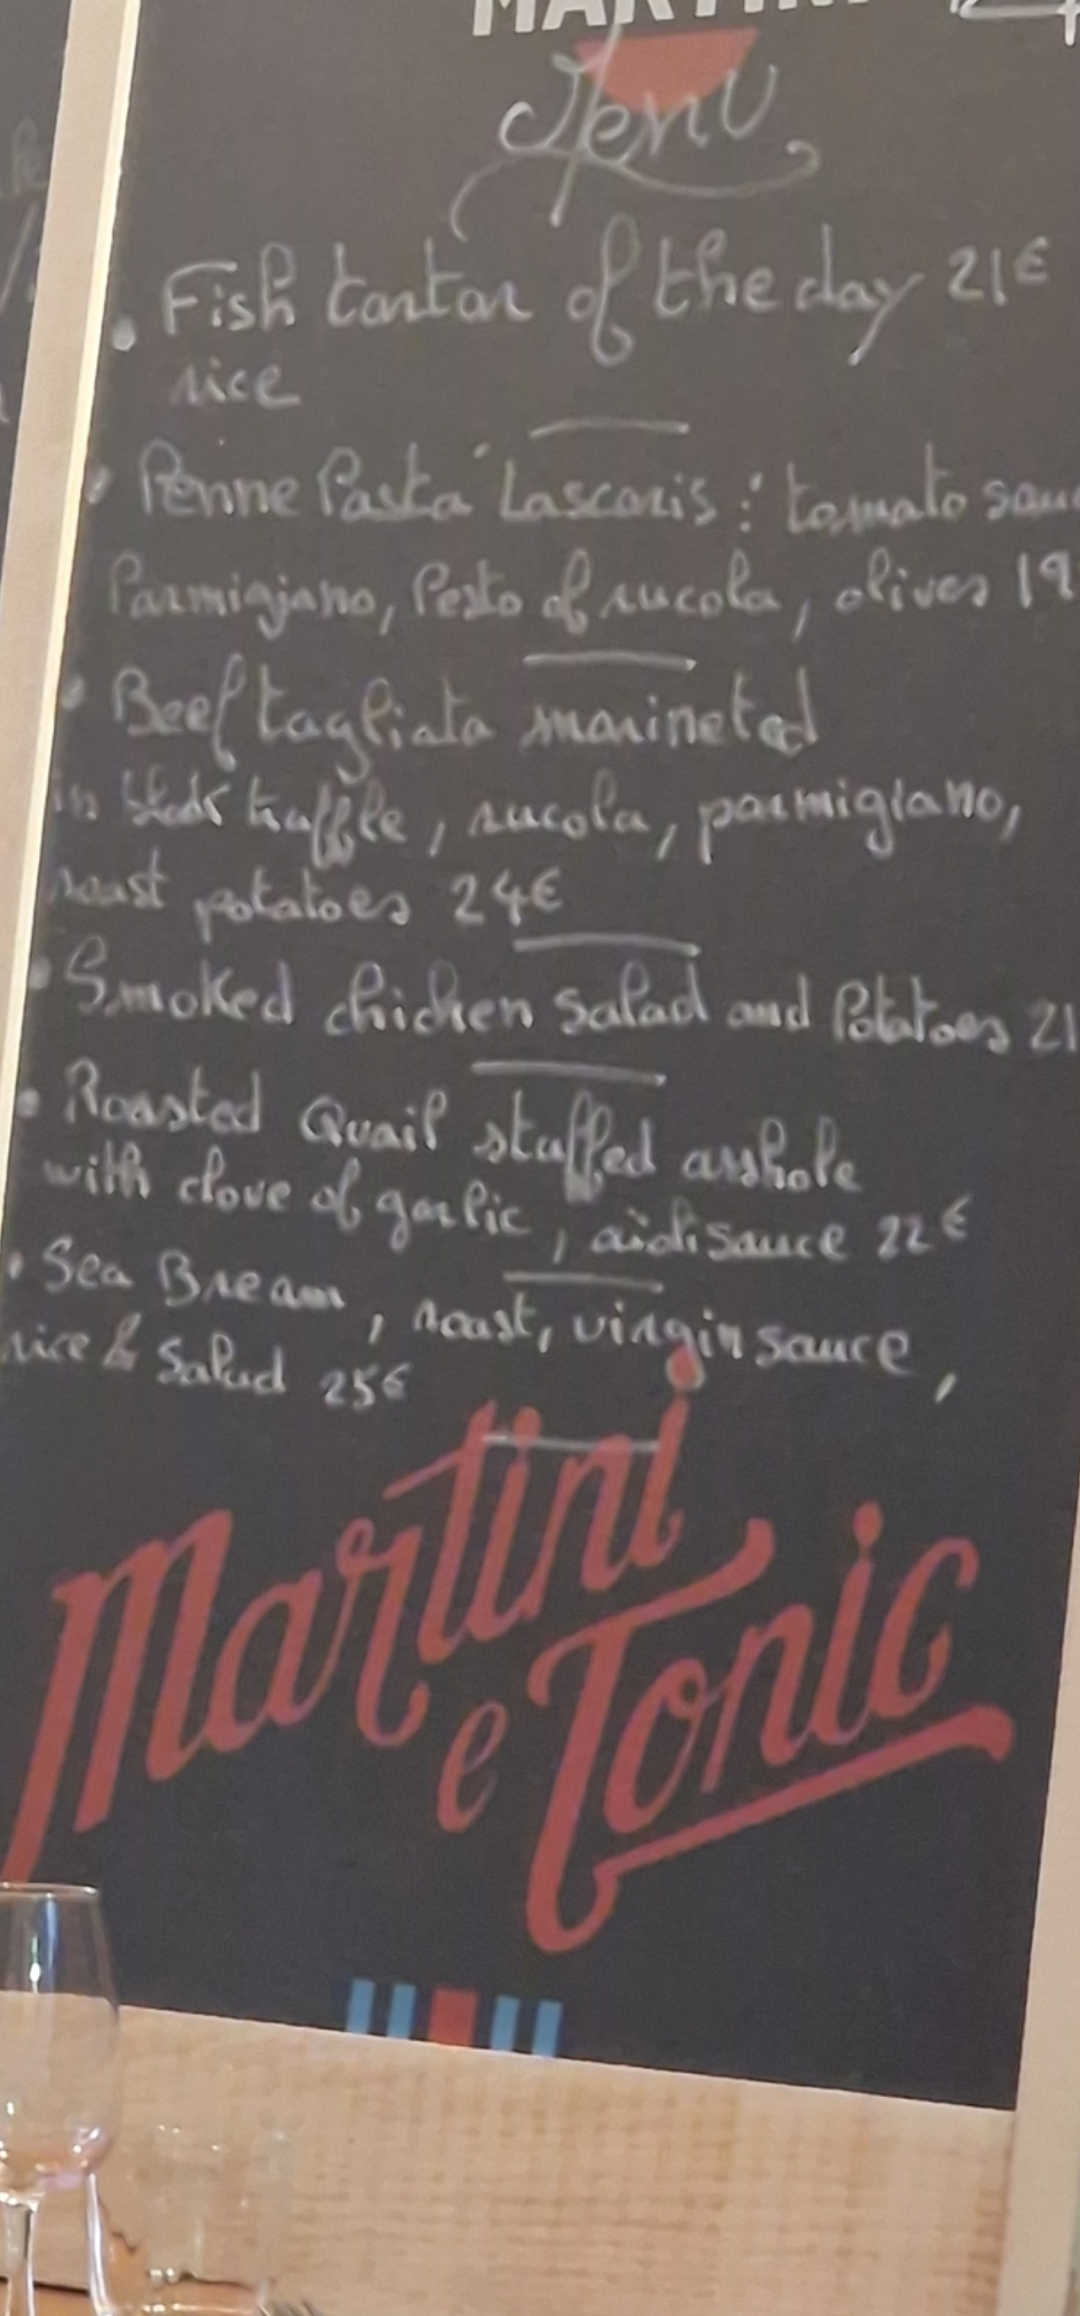 MARTINI
Menu
• Fish tartar of the day 21€
rice
• Penne Pasta Lascaris : tomato sau
Parmigiano, Pesto of rucola, olives 19
• Beef tagliata marineted
in black truffle, rucola, parmigiano,
roast potatoes 24€
• Smoked chicken salad and Potatoes 21
• Roasted Quail stuffed asshole
with clove of garlic, aïoli sauce 22€
• Sea Bream, roast, virgin sauce,
rice & Salad 25€
Martini
e Tonic